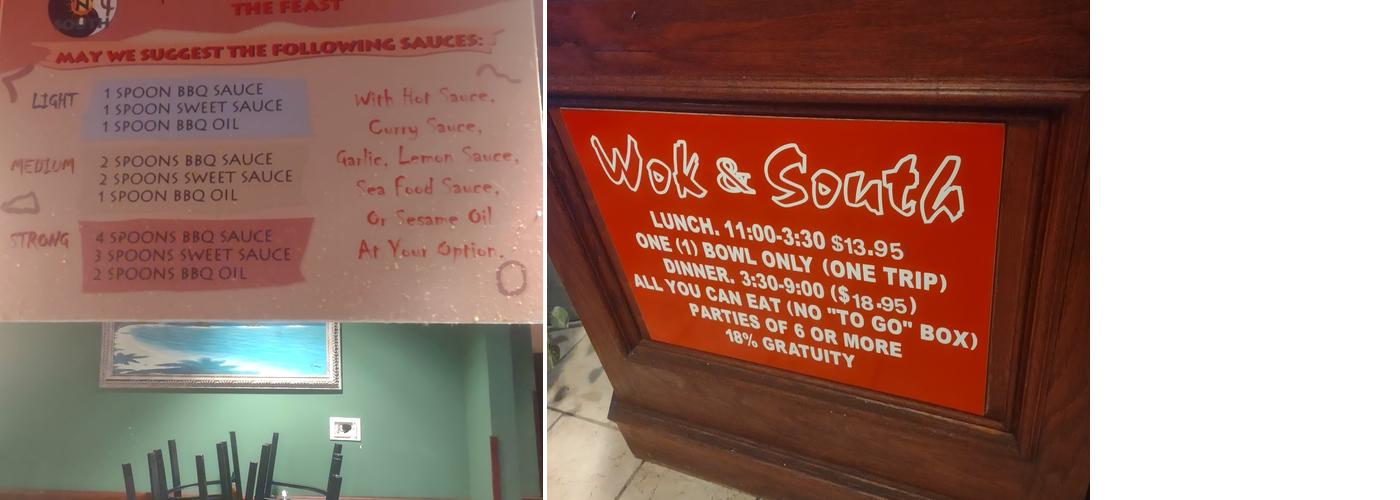 N
SOUTH
THE FEAST
MAY WE SUGGEST THE FOLLOWING SAUCES:
LIGHT
1 SPOON BBQ SAUCE
1 SPOON SWEET SAUCE
1 SPOON BBQ OIL
MEDIUM
2 SPOONS BBQ SAUCE
2 SPOONS SWEET SAUCE
1 SPOON BBQ OIL
STRONG
4 SPOONS BBQ SAUCE
3 SPOONS SWEET SAUCE
2 SPOONS BBQ OIL
With Hot Sauce,
Curry Sauce,
Garlic, Lemon Sauce,
Sea Food Sauce,
Or Sesame Oil
At Your Option.
Wok & South
LUNCH. 11:00-3:30 $13.95
ONE (1) BOWL ONLY (ONE TRIP)
DINNER. 3:30-9:00 ($18.95)
ALL YOU CAN EAT (NO "TO GO" BOX)
PARTIES OF 6 OR MORE
18% GRATUITY